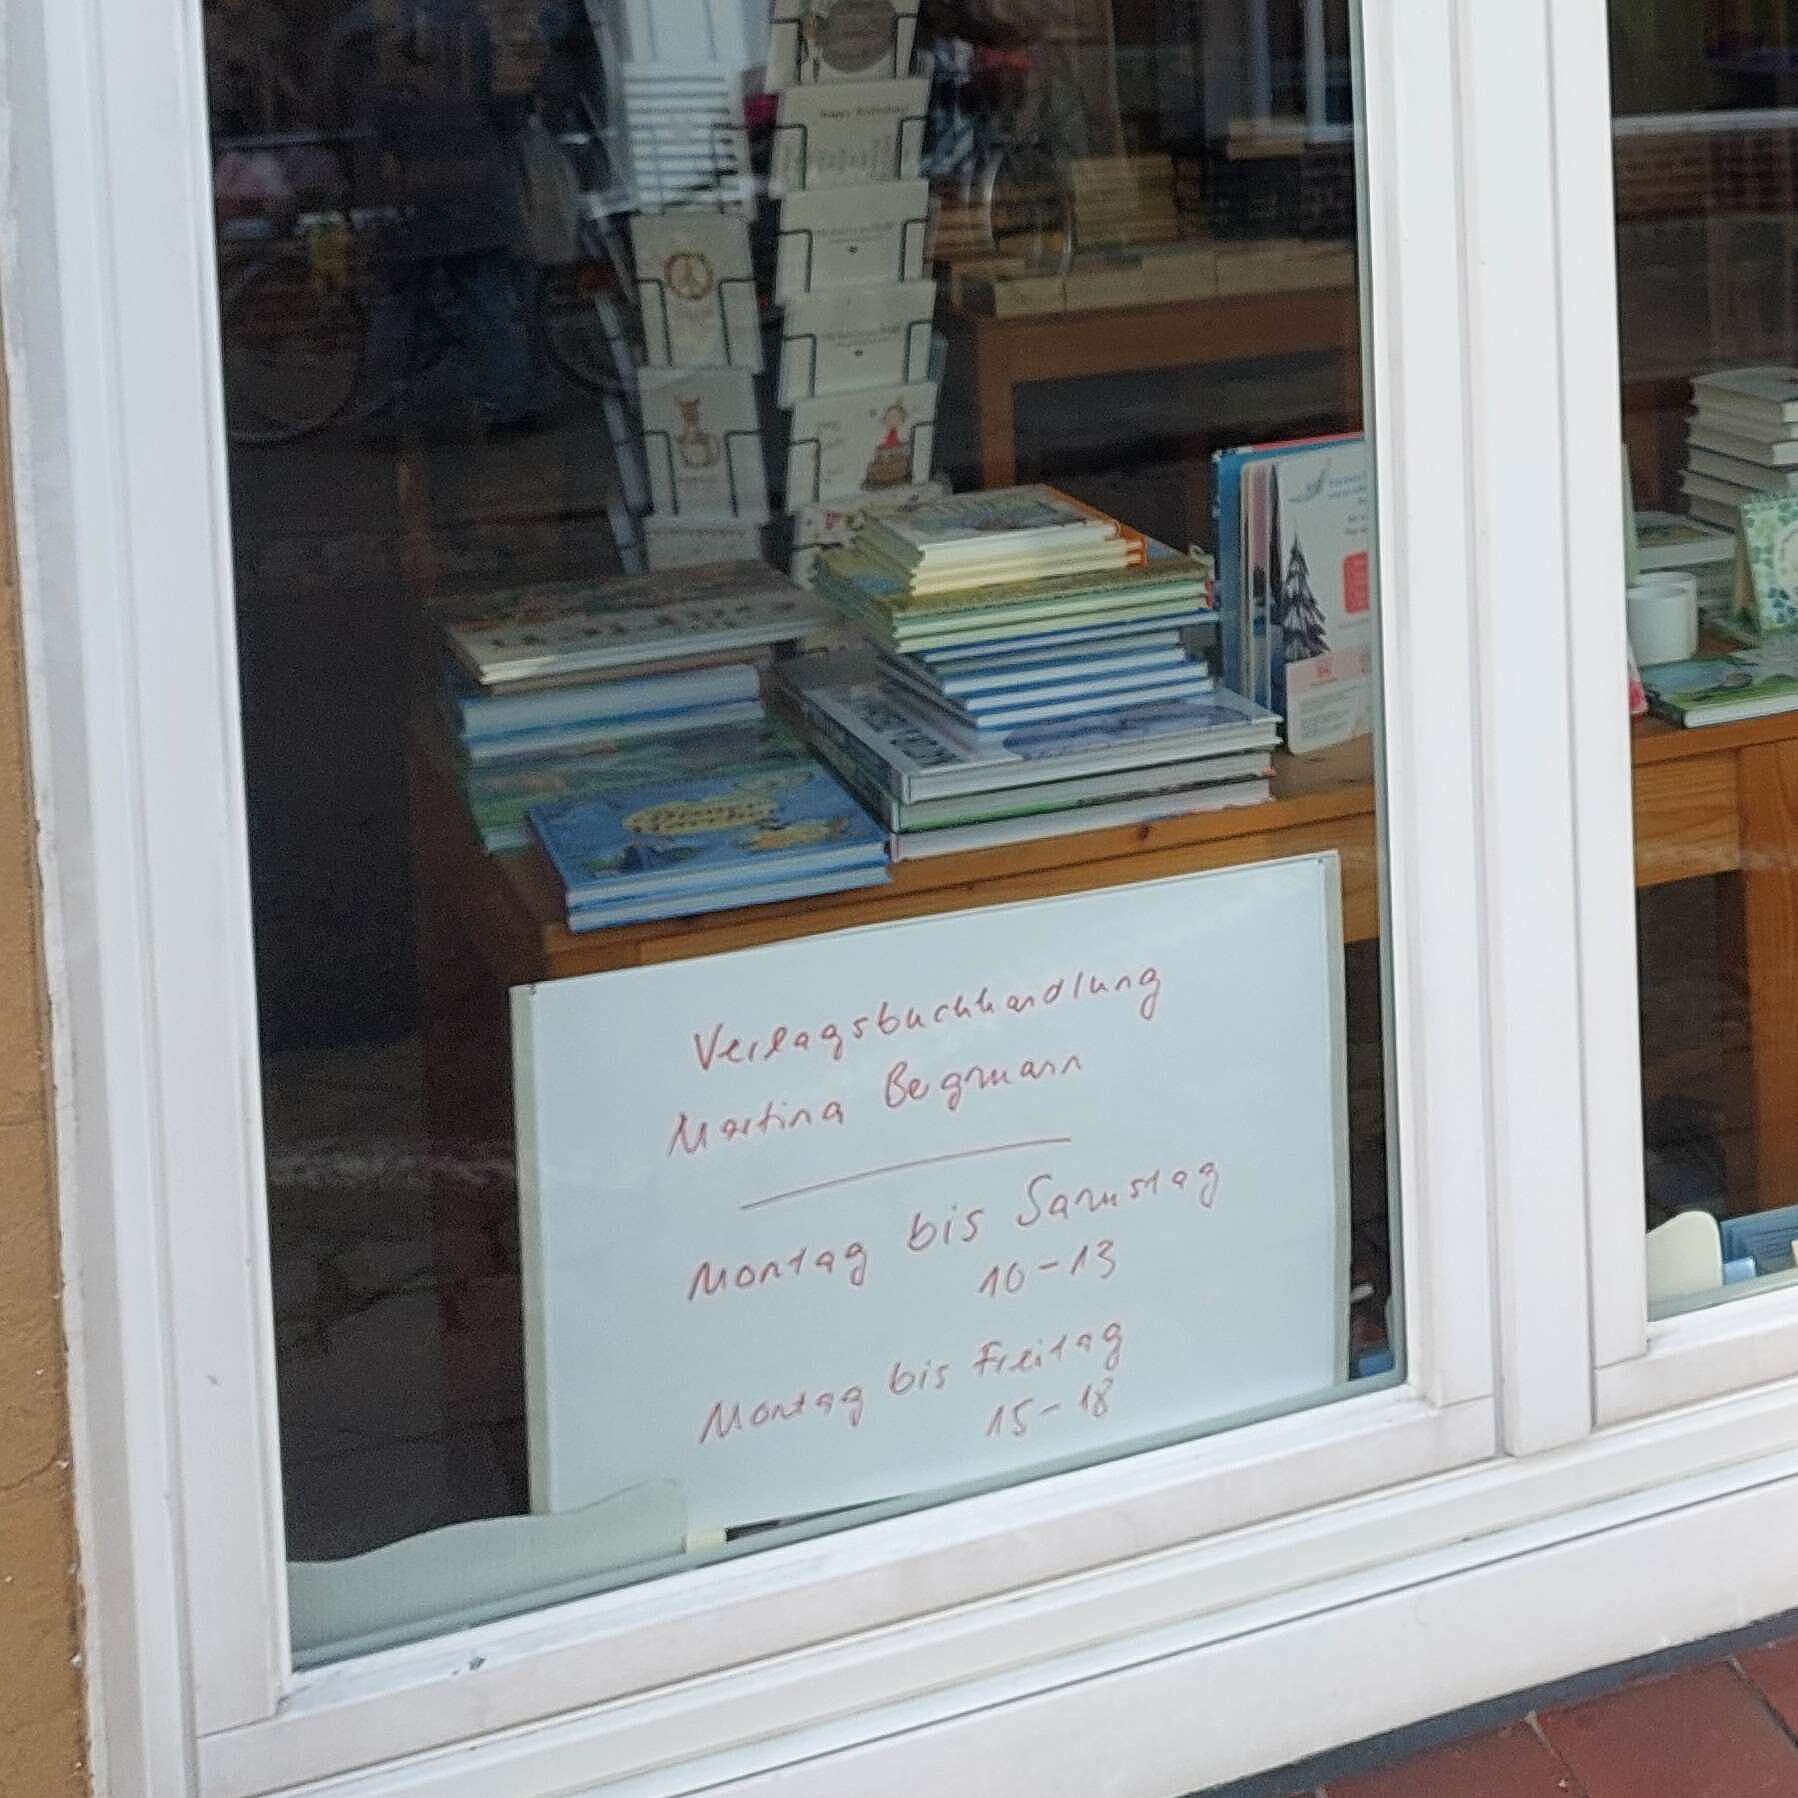 Verlagsbuchhandlung
Martina Bergmann
Montag bis Samstag
10-13
Montag bis Freitag
15-18